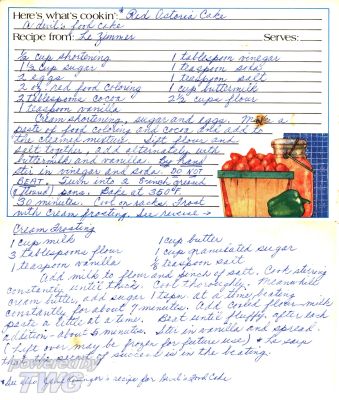 Here's what's cookin': *Red Astoria Cake
A devil's food cake
Recipe from: Le Zimmer Serves:
½ cup shortening 1 tablespoon vinegar
1½ cup sugar 1 teaspoon soda
2 eggs 1 teaspoon salt
2 oz. red food coloring 1 cup buttermilk
2 tablespoons cocoa 2½ cups flour
1 teaspoon vanilla
Cream shortening, sugar and eggs. Make a
paste of food coloring and cocoa and add to
the creamed mixture. Sift flour and
salt together, add alternately with
buttermilk and vanilla. By hand
stir in vinegar and soda. DO NOT
BEAT. Turn into 2 8-inch round
(floured) pans. Bake at 350°F.
30 minutes. Cool on racks. Frost
with cream frosting. See reverse →
Cream Frosting
1 cup milk 1 cup butter
3 tablespoons flour 1 cup granulated sugar
1 teaspoon vanilla teaspoon salt
Add milk to flour and pinch of salt. Cook stirring
constantly until thick. Cool thoroughly. Meanwhile
cream butter, add sugar 1 tspn at a time, beating
constantly for about 7 minutes. Add cooled flour-milk
paste a little at a time. Beat until fluffy, after each
addition - about 6 minutes. Stir in vanilla and spread.
(Left over may be frozen for future use) * Le says
that the secret of success is in the beating.
*See also recipe for Devil's Food Cake
powered by
TWG